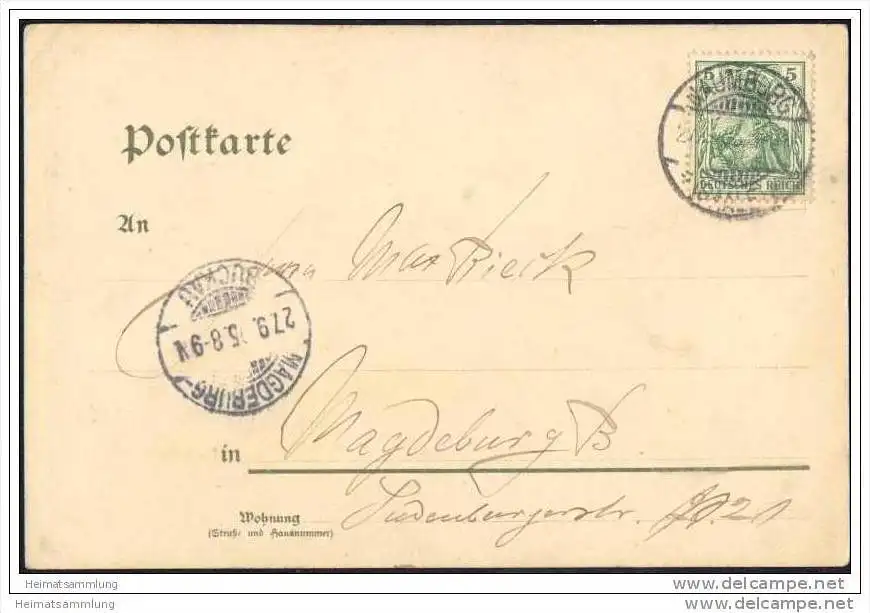 Postkarte
5 5
NAUMBURG
DEUTSCHES REICH
An
Herrn Max Bieck
BUCKAU
27.9.05.8-9V.
MAGDEBURG-
in Magdeburg B.
Wohnung
(Straße und Hausnummer)
Sudenburgerstr. 21
Heimatsammlung
Heimatsammlung
www.delcampe.net